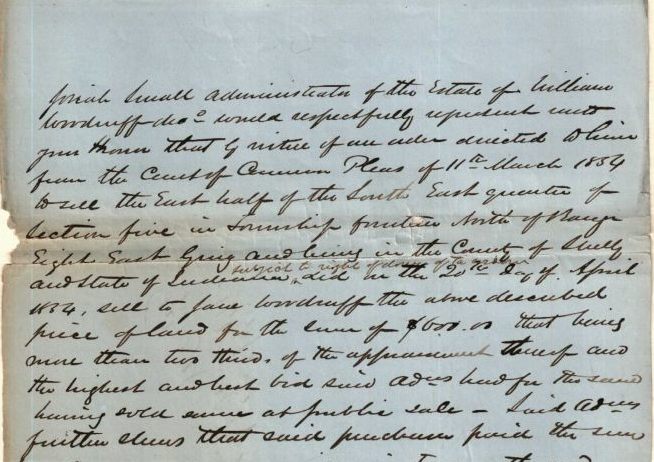 Josiah Small Administrator of the Estate of William
Woodruff decd would respectfully represent unto
your Honor that by virtue of an order directed to him
from the Court of Common Pleas of 11th March 1854
to sell the East half of the South East quarter of
Section five in Township fourteen North of Range
Eight East lying and being in the County of Shelby
subject to right of dower of the
and State of Indiana, did on the 20th Day of April
1854, sell to Jane Woodruff the above described
piece of land for the sum of $600.00 that being
more than two thirds of the appraisement thereof and
the highest and best bid said Admr had for the same
having sold same at public sale - Said Admr
further shews that said purchaser paid the sum